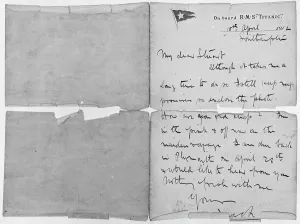 On board R.M.S. "TITANIC".
10th April 1912
Southampton
My dear Stuart
Although it takes me a
long time to do so I still keep my
promises so enclose the photo.
How are you old chap? I'm
in the pink & off now on the
maiden voyage. I am due back
in Plymouth on April 28th
would like to hear from you
Nothing fresh with me
Yours
Jack